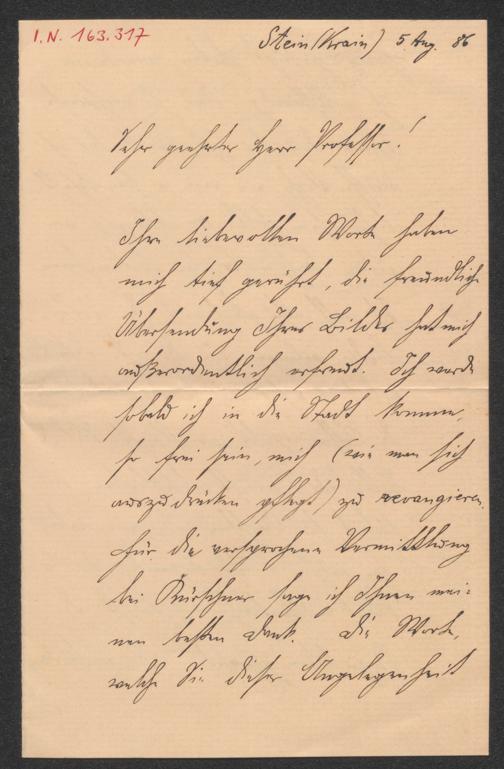 I.N. 163.317
Stein (Krain) 5 Aug. 86
Sehr geehrter Herr Professor!
Ihre liebevollen Worte haben
mich tief gerührt, die freundliche
Übersendung Ihres Bildes hat mich
außerordentlich erfreut. Ich werde
sobald ich in die Stadt komme,
so frei sein, mich (wie man sich
auszudrücken pflegt) zu revangieren.
Für die versprochene Vermittlung
bei Kürschner sage ich Ihnen mei-
nen besten Dank. Die Worte,
welche Sie dieser Angelegenheit